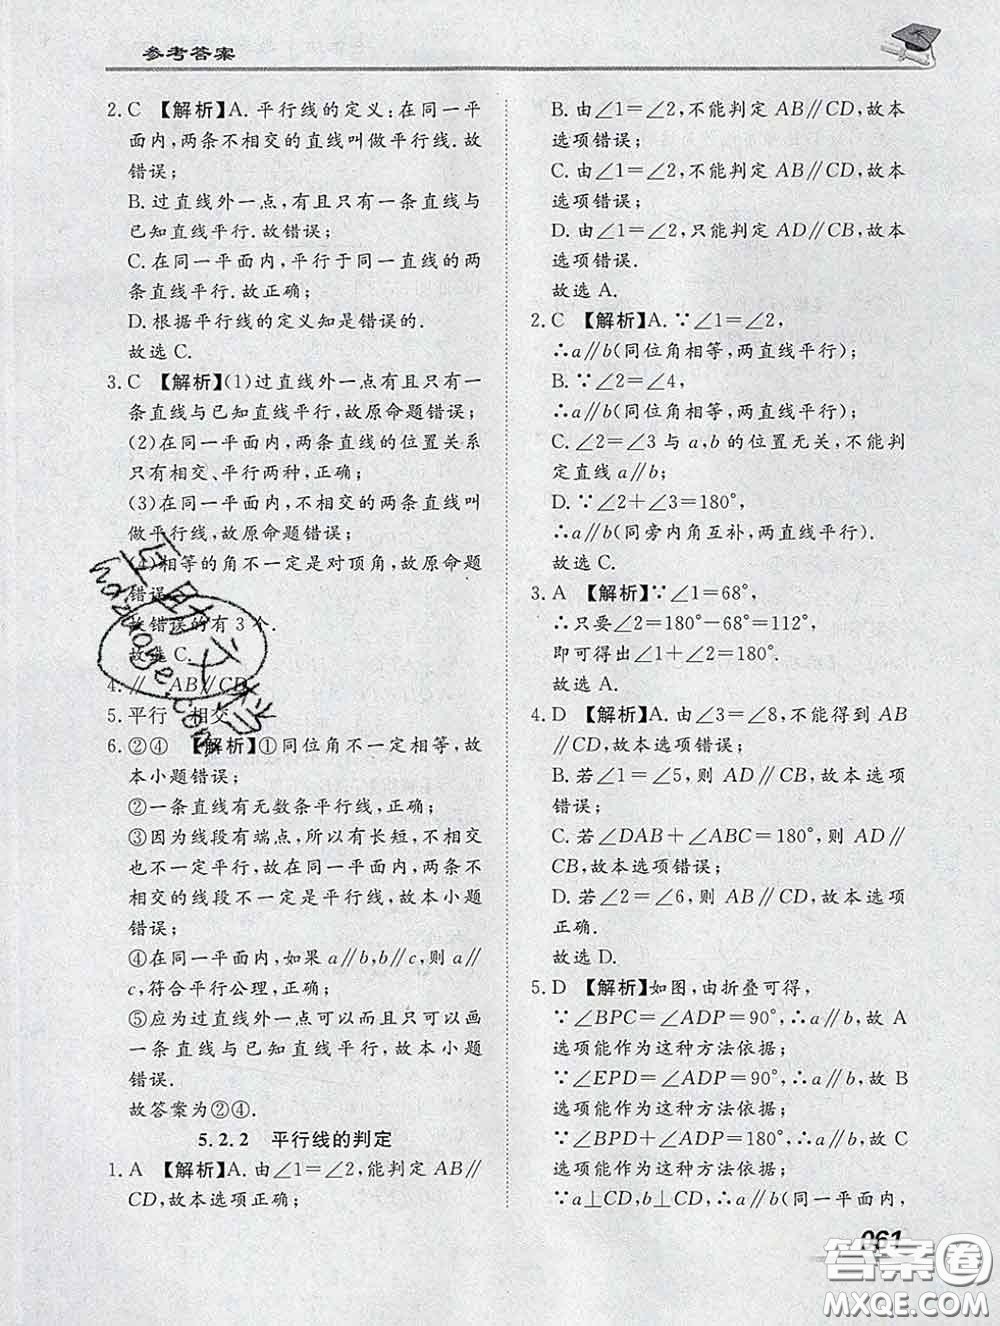 参考答案
2. C 【解析】A. 平行线的定义:在同一平
面内,两条不相交的直线叫做平行线. 故
错误;
B. 过直线外一点,有且只有一条直线与
已知直线平行. 故错误;
C. 在同一平面内,平行于同一直线的两
条直线平行. 故正确;
D. 根据平行线的定义知是错误的.
故选 C.
3. C 【解析】(1)过直线外一点有且只有一
条直线与已知直线平行,故原命题错误;
(2)在同一平面内,两条直线的位置关系
只有相交、平行两种,正确;
(3)在同一平面内,不相交的两条直线叫
做平行线,故原命题错误;
(4)相等的角不一定是对顶角,故原命题
错误.
故错误的有 3 个.
故选 C.
4. ∥ AB∥CD
5. 平行 相交
6. ②④ 【解析】①同位角不一定相等,故
本小题错误;
②一条直线有无数条平行线,正确;
③因为线段有端点,所以有长短,不相交
也不一定平行,故在同一平面内,两条不
相交的线段不一定是平行线,故本小题
错误;
④在同一平面内,如果 a∥b,b∥c,则 a∥
c,符合平行公理,正确;
⑤应为过直线外一点可以而且只可以画
一条直线与已知直线平行,故本小题
错误.
故答案为②④.
5.2.2 平行线的判定
1. A 【解析】A. 由∠1=∠2,能判定 AB∥
CD,故本选项正确;
B. 由∠1=∠2,不能判定 AB∥CD,故本
选项错误;
C. 由∠1=∠2,不能判定 AB∥CD,故本
选项错误;
D. 由∠1=∠2,只能判定 AD∥CB,故本
选项错误.
故选 A.
2. C 【解析】A. ∵∠1=∠2,
∴a∥b(同位角相等,两直线平行);
B. ∵∠2=∠4,
∴a∥b(同位角相等,两直线平行);
C. ∠2=∠3 与 a,b 的位置无关,不能判
定直线 a∥b;
D. ∵∠2+∠3=180°,
∴a∥b(同旁内角互补,两直线平行).
故选 C.
3. A 【解析】∵∠1=68°,
∴只要∠2=180°-68°=112°,
即可得出∠1+∠2=180°.
故选 A.
4. D 【解析】A. 由∠3=∠8,不能得到 AB
∥CD,故本选项错误;
B. 若∠1=∠5,则 AD∥CB,故本选项
错误;
C. 若∠DAB+∠ABC=180°,则 AD∥
CB,故本选项错误;
D. 若∠2=∠6,则 AB∥CD,故本选项
正确.
故选 D.
5. D 【解析】如图,由折叠可得,
∵∠BPC=∠ADP=90°,∴a∥b,故 A
选项能作为这种方法依据;
∵∠EPD=∠ADP=90°,∴a∥b,故 B
选项能作为这种方法依据;
∵∠BPD+∠ADP=180°,∴a∥b,故 C
选项能作为这种方法依据;
∵a⊥CD,b⊥CD,∴a∥b(同一平面内,
061
答案圈
MXQE.COM